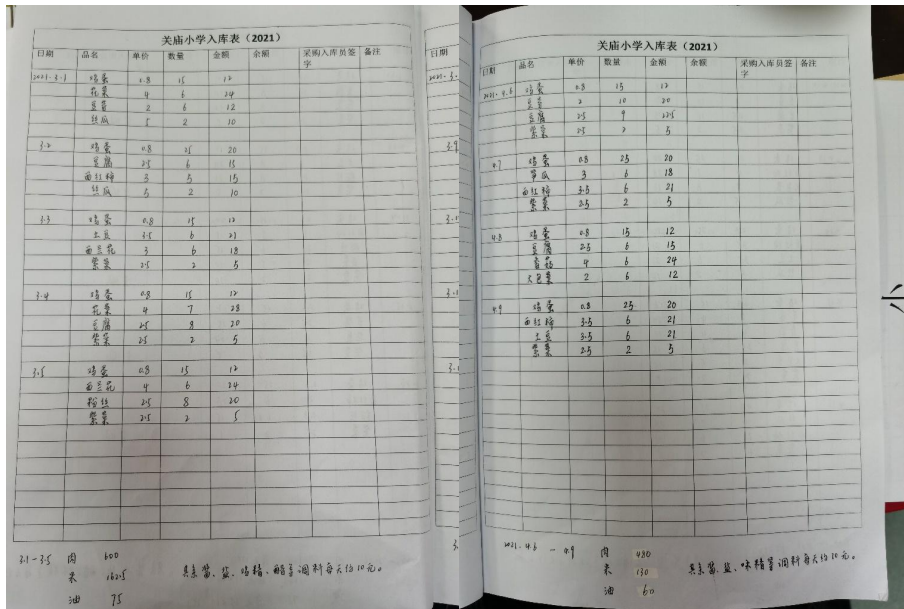 关庙小学入库表（2021）
日期 品名 单价 数量 金额 余额 采购入库员签字 备注
2021-3.1 鸡蛋 0.8 15 12
花菜 4 6 24
2 6 12
丝瓜 5 2 10
3.2 鸡蛋 0.8 25 20
豆腐 2.5 6 15
西红柿 3 5 15
丝瓜 5 2 10
3.3 鸡蛋 0.8 15 12
土豆 3.5 6 21
西兰花 3 6 18
紫菜 2.5 2 5
3.4 鸡蛋 0.8 15 12
花菜 4 7 28
豆腐 2.5 8 20
紫菜 2.5 2 5
3.5 鸡蛋 0.8 15 12
西兰花 4 6 24
粉丝 2.5 8 20
紫菜 2.5 2 5
3.1-3.5 肉 600
米 162.5
油 75
其余酱、盐、鸡精、醋等调料每天约10元。
日期
关庙小学入库表（2021）
日期 品名 单价 数量 金额 余额 采购入库员签字 备注
2021-4.6 鸡蛋 0.8 15 12
2 10 20
豆腐 2.5 9 22.5
紫菜 2.5 2 5
4.7 鸡蛋 0.8 25 20
笋瓜 3 6 18
西红柿 3.5 6 21
紫菜 2.5 2 5
4.8 鸡蛋 0.8 15 12
豆腐 2.5 6 15
香菇 4 6 24
大包菜 2 6 12
4.9 鸡蛋 0.8 25 20
西红柿 3.5 6 21
土豆 3.5 6 21
紫菜 2.5 2 5
2021-4.6-4.9 肉 480
米 130
油 60
其余酱、盐、味精等调料每天约10元。